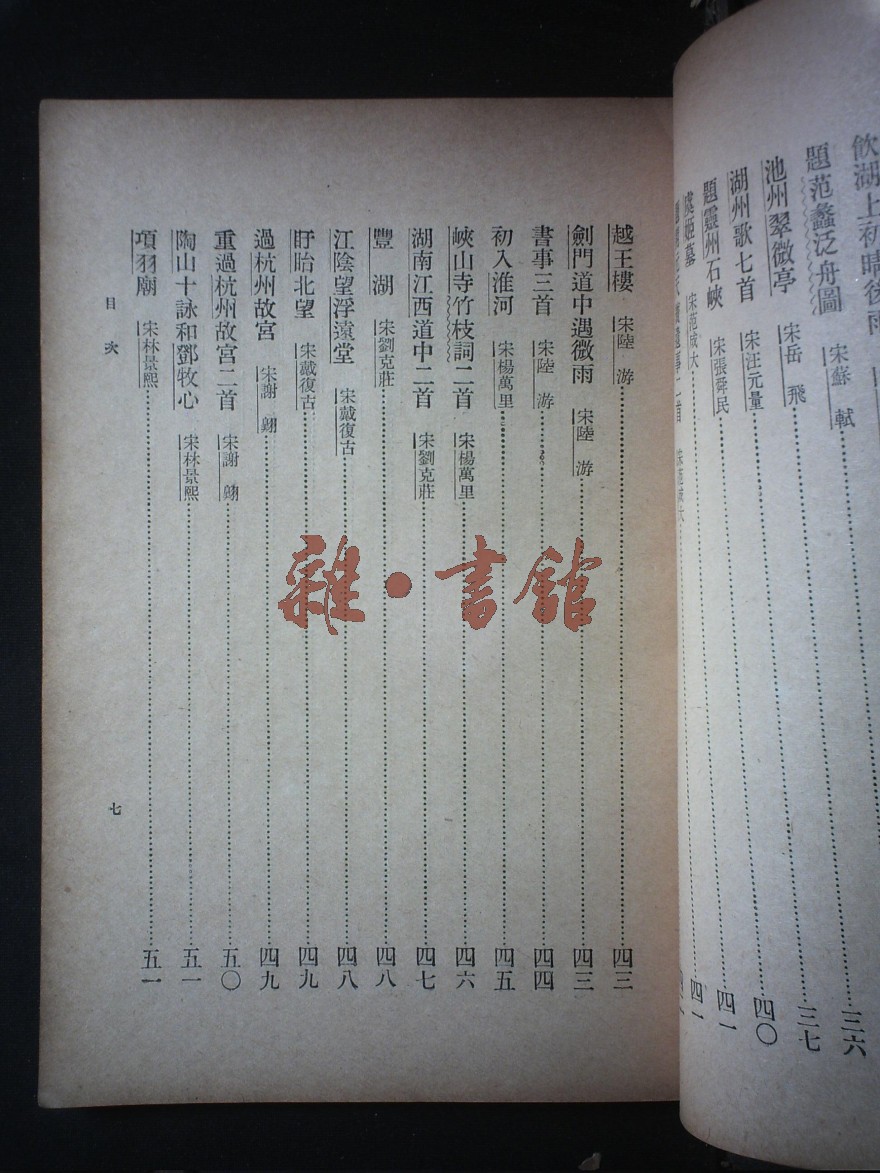 飲湖上初晴後雨
三六
題范蠡泛舟圖 宋蘇軾……三六
池州翠微亭 宋岳飛……三七
湖州歌七首 宋汪元量……四〇
題靈州石峽 宋張舜民……四一
虞姬墓 宋范成大……四一
二首 宋范成大
越王樓 宋陸游……四三
劍門道中遇微雨 宋陸游……四三
書事三首 宋陸游……四四
初入淮河 宋楊萬里……四五
峽山寺竹枝詞二首 宋楊萬里……四六
湖南江西道中二首 宋劉克莊……四七
豐湖 宋劉克莊……四八
江陰望浮遠堂 宋戴復古……四八
盱眙北望 宋戴復古……四九
過杭州故宮 宋謝翱……四九
重過杭州故宮二首 宋謝翱……五〇
陶山十詠和鄧牧心 宋林景熙……五一
項羽廟 宋林景熙……五一
目次
七
雜·書館